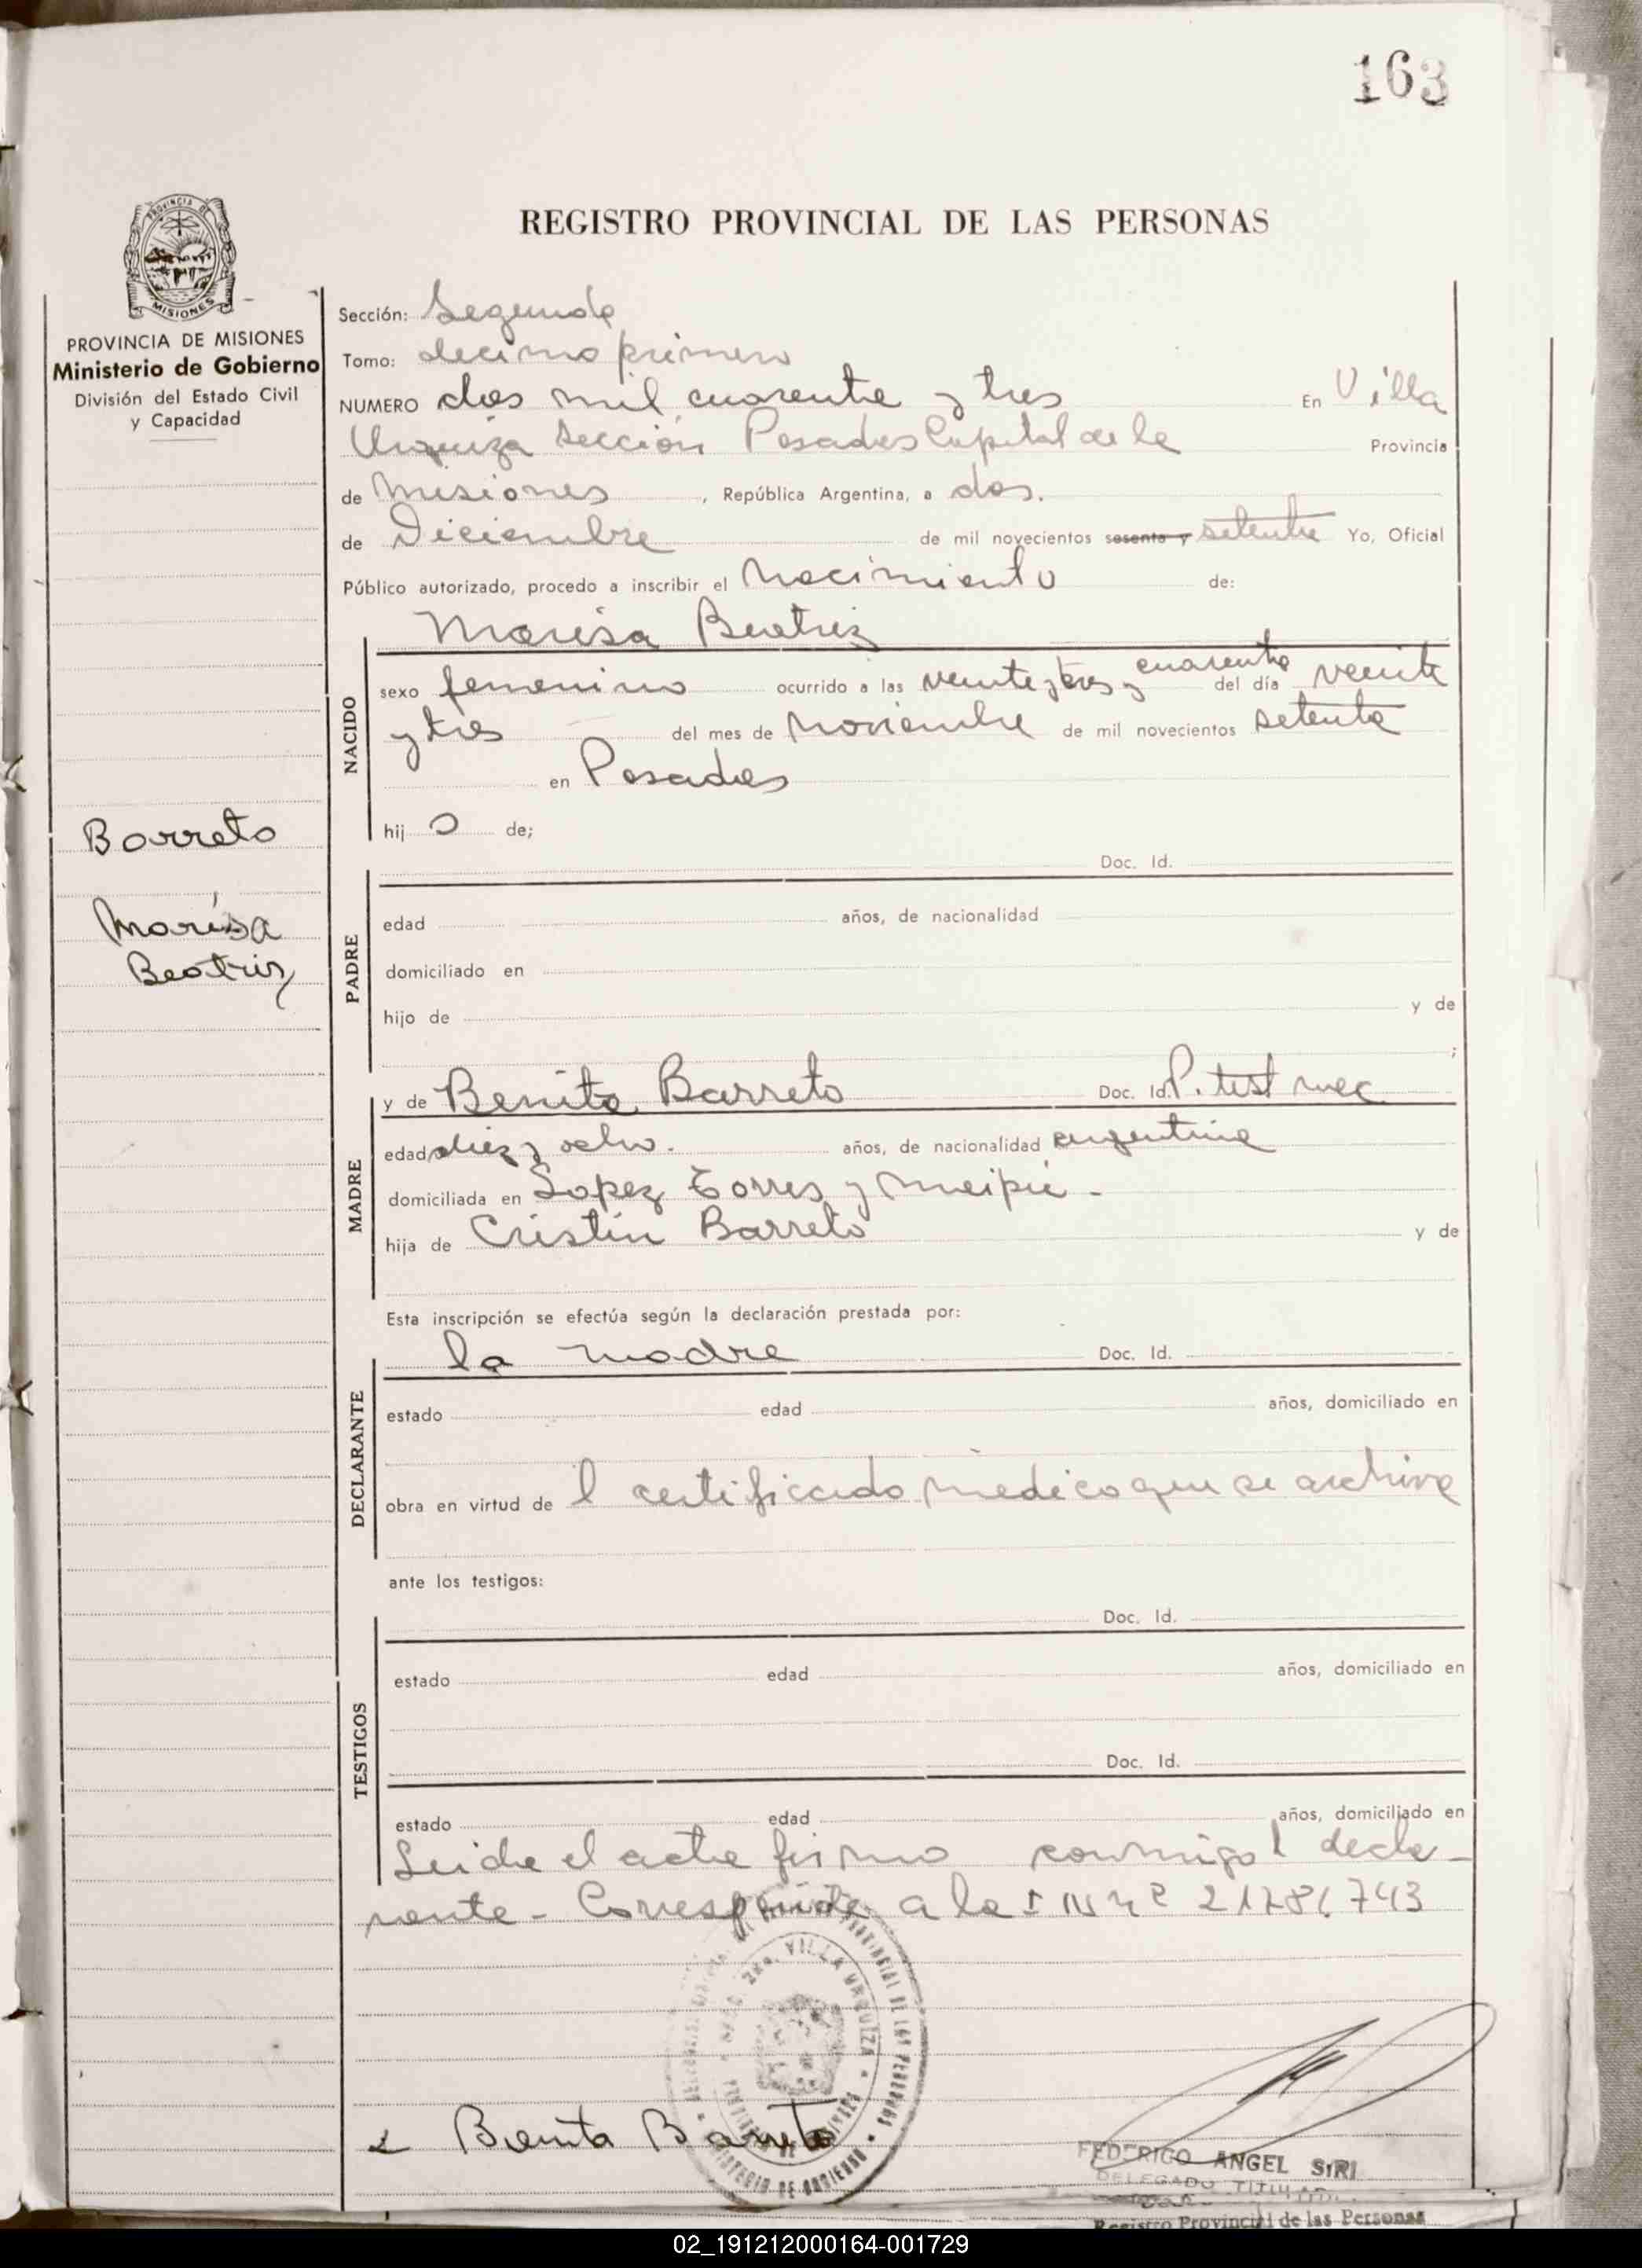 163
REGISTRO PROVINCIAL DE LAS PERSONAS
PROVINCIA DE MISIONES
Ministerio de Gobierno
División del Estado Civil
y Capacidad
Sección: Segunda
Tomo: decimo primero
NUMERO dos mil cuarenta y tres En Villa
Urquiza Sección Posadas Capital de la Provincia
de Misiones, República Argentina, a dos.
de Diciembre de mil novecientos sesenta y setenta Yo, Oficial
Público autorizado, procedo a inscribir el Nacimiento de:
Marisa Beatriz
NACIDO
sexo femenino ocurrido a las veinte y tres y cuarenta del día veinte
y tres del mes de Noviembre de mil novecientos setenta
en Posadas
hij a de;
Barreto
Marisa
Beatriz
PADRE
Doc. Id.
edad años, de nacionalidad
domiciliado en
hijo de y de
;
MADRE
y de Benita Barreto Doc. Id. P. test nac
edad diez y ocho. años, de nacionalidad argentina
domiciliada en Lopez Torres y Maipú -
hija de Cristin Barreto y de
Esta inscripción se efectúa según la declaración prestada por:
DECLARANTE
la madre Doc. Id.
estado edad años, domiciliado en
obra en virtud de l certificado médico que se archiva
ante los testigos:
TESTIGOS
Doc. Id.
estado edad años, domiciliado en
Doc. Id.
estado edad años, domiciliado en
Leida el acta firma conmigo l decla-
rante - Corresponde a la
VILLA URQUIZA
MINISTERIO DE GOBIERNO
Benita Barreto
FEDERICO ANGEL SIRI
DELEGADO TITULAR
Registro Provincial de las Personas
02_191212000164-001729